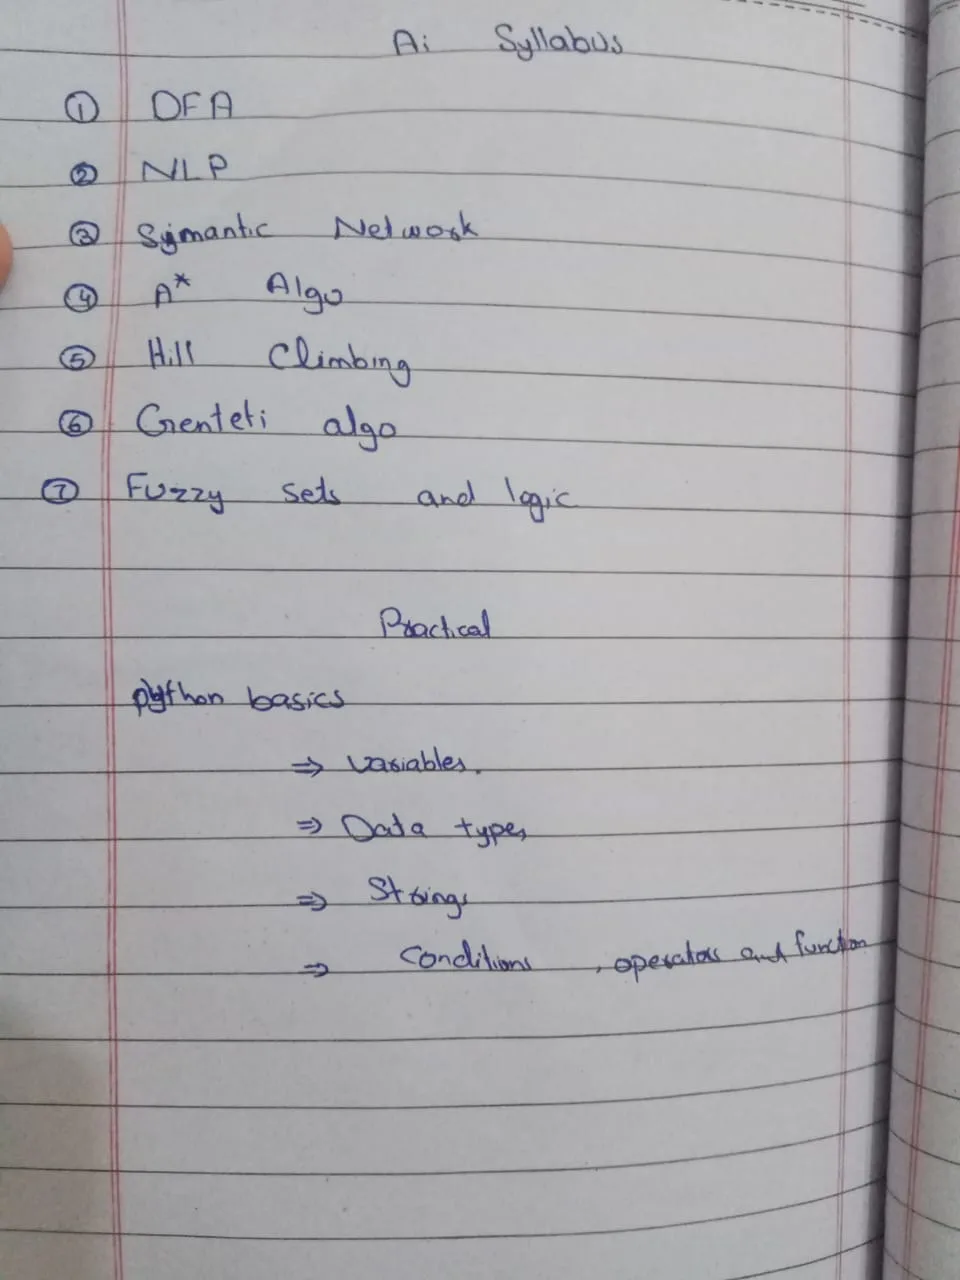 Ai Syllabus
① DFA
② NLP
③ Symantic Network
④ A* Algo
⑤ Hill Climbing
⑥ Genteti algo
⑦ Fuzzy sets and logic
Practical
python basics
⇒ variables.
⇒ Data types
⇒ Strings
⇒ Conditions , operators and function